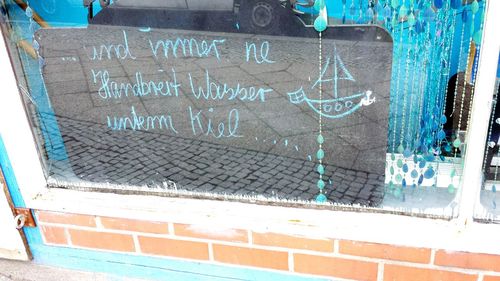 ... und immer ne
Handbreit Wasser
unterm Kiel .....